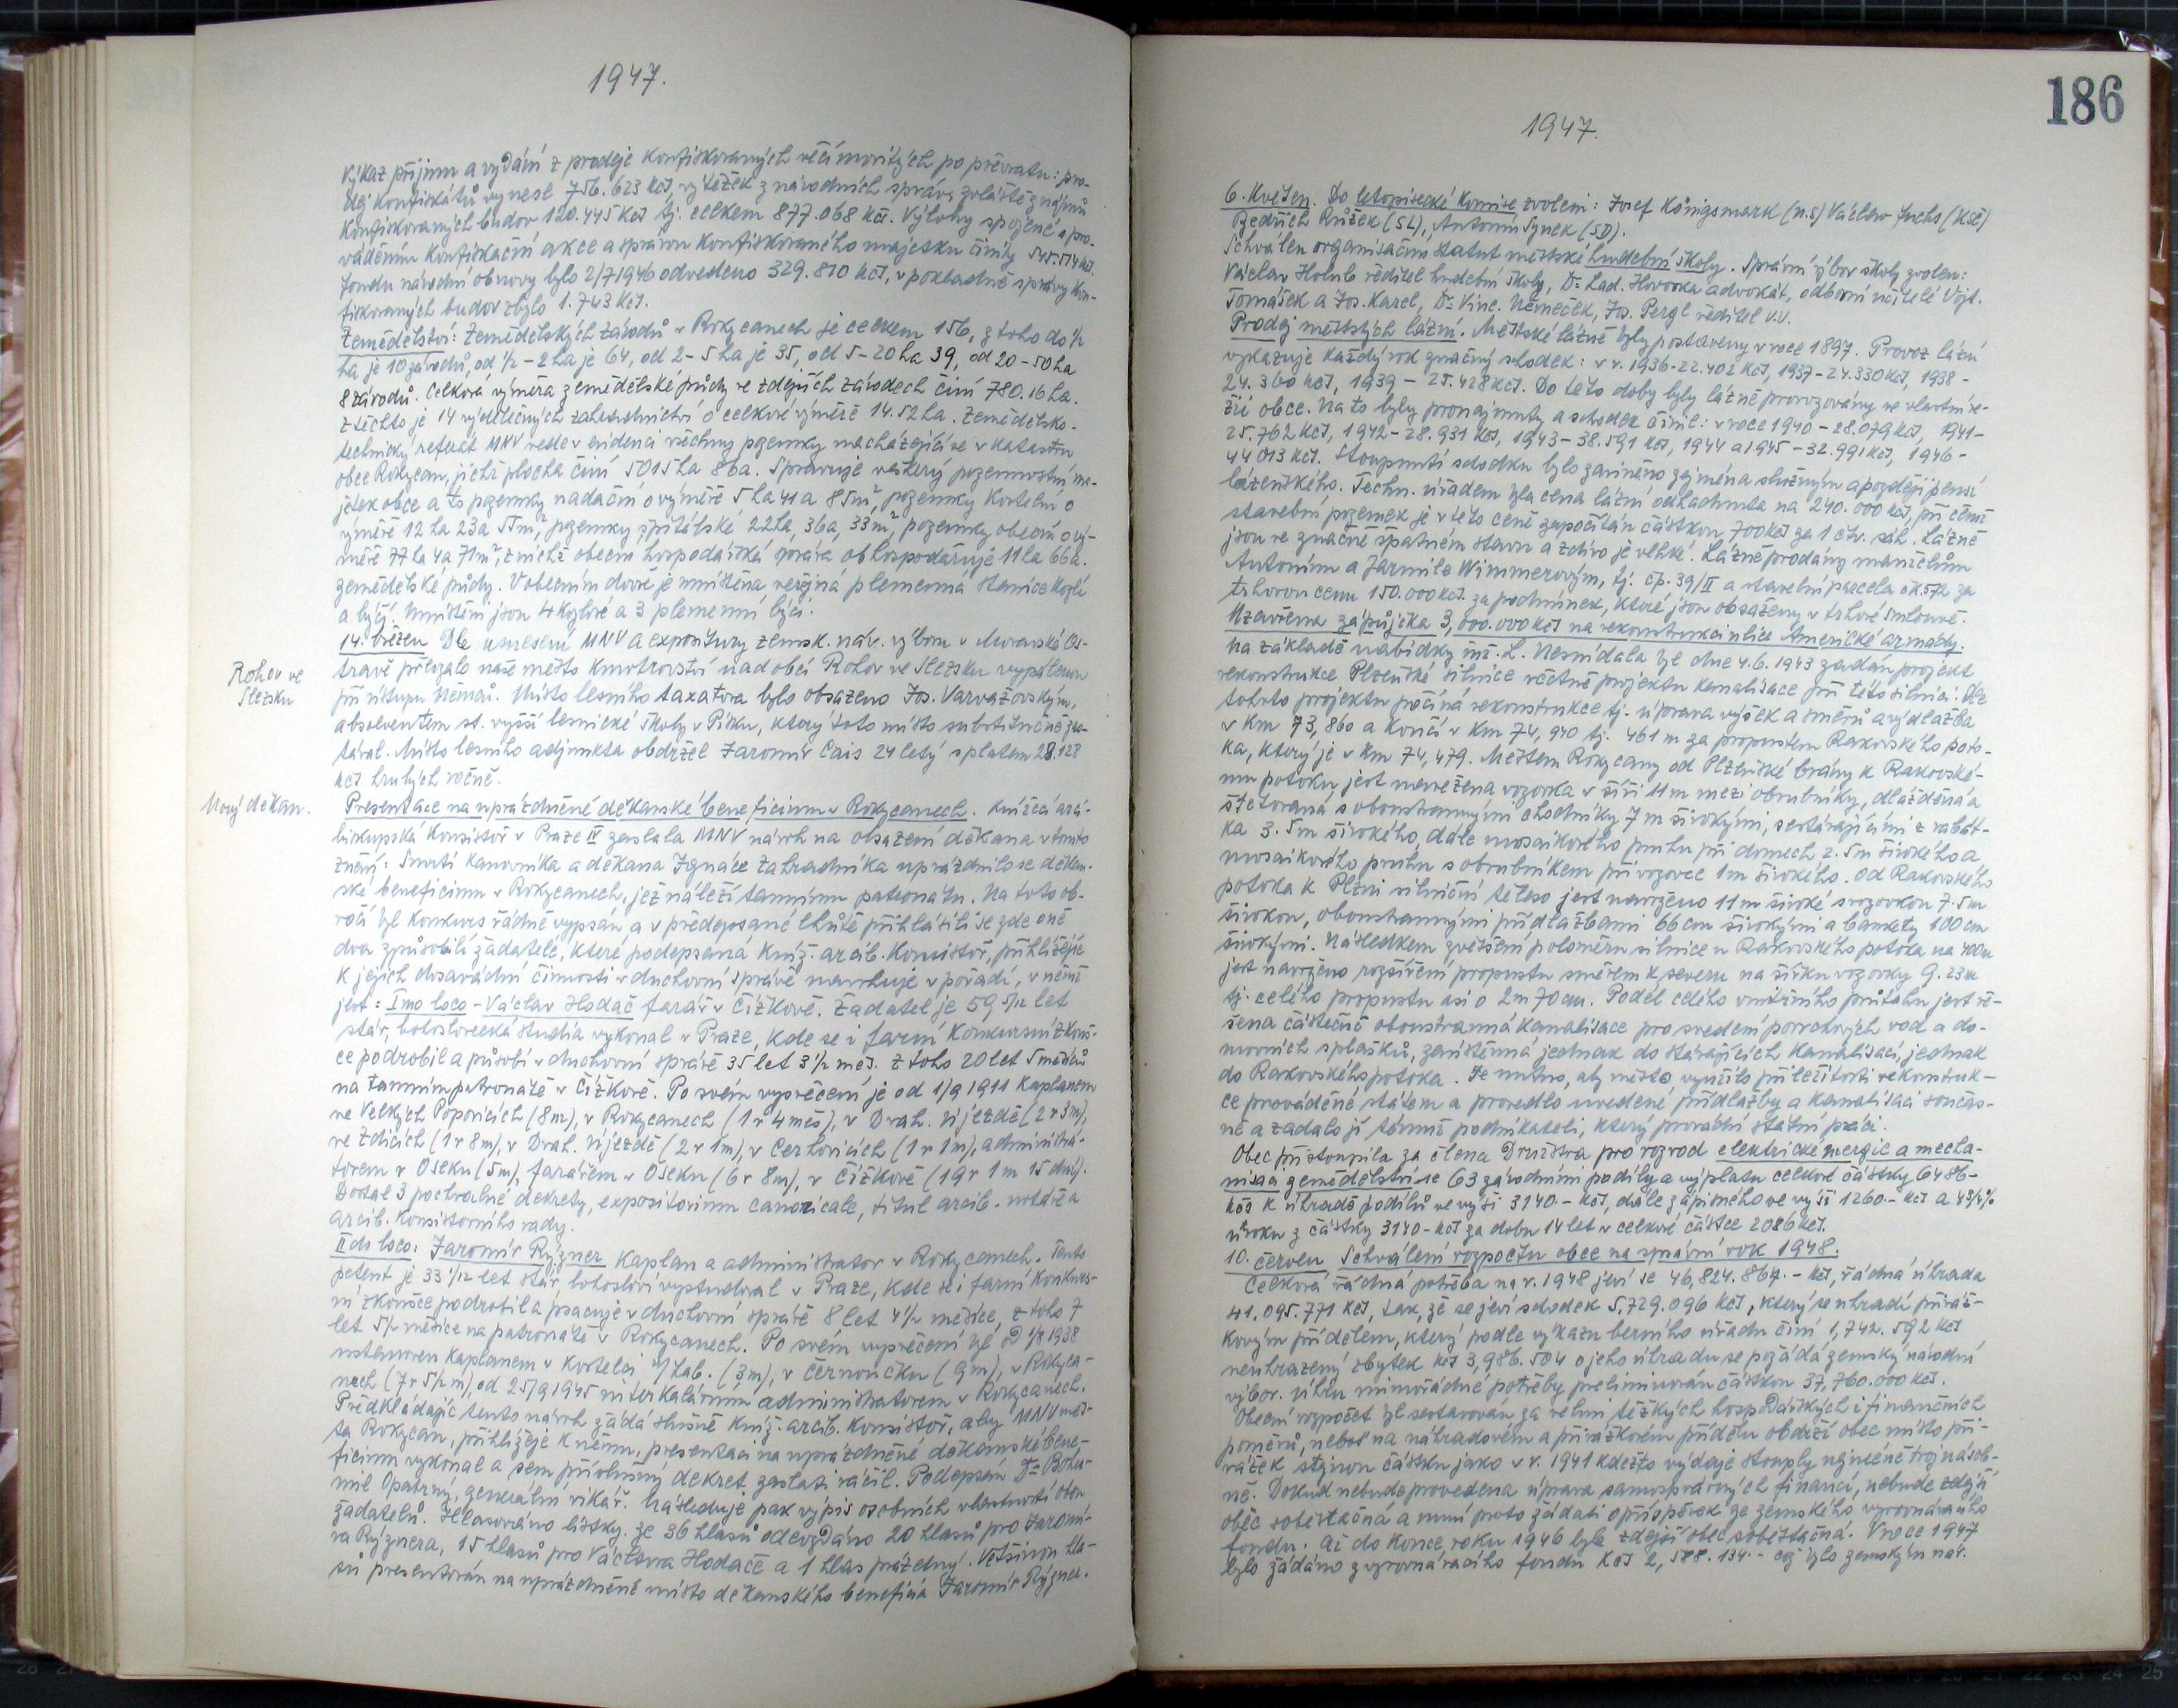 1947.
Výkaz příjmu a vydání z prodeje konfiskovaných věcí movitých po převratu: pro-
dej konfiskátů vynesl 756.623 Kčs, výtěžek z národních správ, zvláště z nájmů
konfiskovaných budov 120.445 Kčs tj. celkem 877.068 Kčs. Výlohy spojené s pro-
váděním konfiskační akce a správou konfiskovaného majetku činily 545.514 Kčs.
Fondu národní obnovy bylo 2/7 1946 odvedeno 329.810 Kčs, v pokladně správy kon-
fiskovaných budov zbylo 1.743 Kčs.
Zemědělství: Zemědělských závodů v Rokycanech je celkem 156, z toho do ½
ha je 10 závodů, od ½ - 2 ha je 64, od 2 - 5 ha je 35, od 5 - 20 ha 39, od 20 - 50 ha
8 závodů. Celková výměra zemědělské půdy ve zdejších závodech činí 780.16 ha.
z těchto je 14 výdělečných zahradnictví o celkové výměře 14.52 ha. Zemědělsko-
technický referát MNV vede v evidenci všechny pozemky nacházející se v katastru
obce Rokycan, jichž plocha činí 5015 ha 86a. Spravuje veškerý pozemnostní ma-
jetek obce a to pozemky nadační o výměře 5 ha 41 a 85 m², pozemky kostelní o
výměře 12 ha 23a 55 m², pozemky špitálské 22 ha, 36a, 33 m², pozemky obecní o vý-
měře 77 ha 4a 71 m², z nichž obecní hospodářská správa obhospodařuje 11 ha 66a.
zemědělské půdy. V obecním dvoře je umístěna veřejná plemenná stanice kozlů
a býčí. Umístěni jsou 4 kozlové a 3 plemenní býci.
14. březen Dle usnesení MNV a expositury zemsk. náv. výboru v Moravské Os-
travě převzalo naše město kmotrovství nad obcí Rohov ve Slezsku vypálenou
Rohov ve
Slezsku
při ústupu Němců. Místo lesního taxatora bylo obsazeno Jos. Varvažovským,
absolventem st. vyšší lesnické školy v Písku, který toto místo substitučně za-
stával. Místo lesního adjunkta obdržel Jaromír Čais 24 letý s platem 28.128
Kčs hrubých ročně.
Nový děkan.
Presentace na uprázdněné děkanské beneficium v Rokycanech. Knížecí arci-
biskupská Konsistoř v Praze IV zaslala MNV návrh na obsazení děkana v tomto
znění: Smrtí kanovníka a děkana Ignáce Zahradníka uprázdnilo se děkan-
ské beneficium v Rokycanech, jež náleží tamnímu patronátu. Na toto ob-
ročí byl konkurs řádně vypsán a v předepsané lhůtě přihlásili se zde oné
dva způsobilí žadatelé, které podepsaná kníž. arcib. Konsistoř, přihlížejíc
k jejich dosavadní činnosti v duchovní správě navrhuje v pořadí, v němž
jest: Imo loco - Václav Hodač farář v Čižkově. Žadatel je 59 5/12 let
stár, bohoslovecká studia vykonal v Praze, kde se i farní konkursní zkouš-
ce podrobil a působí v duchovní správě 35 let 3½ měs. z toho 20 let 5 měsíců
na tamním patronátě v Čižkově. Po svém vysvěcení je od 1/9 1911 kaplanem
ve Velkých Popovicích (8m), v Rokycanech (1 r 4 měs), v Drah. Újezdě (2 r 3m),
ve Zdicích (1 r 8 m), v Drah. Újezdě (2 r 1m), v Cerhovicích (1 r 1m), administrá-
torem v Oseku (5m), farářem v Oseku (6 r 8m), v Čižkově (19 r 1 m 15 dní).
Dostal 3 pochvalné dekrety, expositorium canonicale, titul arcib. notáře a
arcib. konsistorního rady.
II do loco: Jaromír Rýzner kaplan a administrator v Rokycanech. Tento
petent je 33 1/12 let stár, bohosloví vystudoval v Praze, kde se i farní konkurs-
ní zkoušce podrobil a pracuje v duchovní správě 8 let 4½ měsíce, z toho 7
let 5½ měsíce na patronátě v Rokycanech. Po svém vysvěcení byl od 1/8 1938
ustanoven kaplanem v Kostelci n/Lab. (3m), v Černoučku (9m), v Rokyca-
nech (7 r 5½ m), od 25/9 1945 interkalárním administrátorem v Rokycanech.
Předkládajíc tento návrh žádá slušně kníž. arcib. Konsistoř, aby MNV měs-
ta Rokycan, přihlížeje k němu, presentaci na uprázdněné děkanské bene-
ficium vykonal a sem příslušný dekret zaslati ráčil. Podepsán Dr Bohu-
mil Opatrný, generální vikář. Následuje pak výpis osobních vlastností obou
žadatelů. Hlasováno lístky. Ze 36 hlasů odevzdáno 20 hlasů pro Jaromí-
ra Rýznera, 15 hlasů pro Václava Hodače a 1 hlas prázdný. Většinou hla-
sů presentován na uprázdněné místo děkanského beneficia Jaromír Rýzner.
186
1947.
6. květen. Do letopisecké komise zvoleni: Josef Königsmark (n.s) Václav Fuchs (KSČ)
Bedřich Růžek (SL), Antonín Synek (SD).
Schválen organisační statut městské hudební školy. Správní výbor školy zvolen:
Václav Holub ředitel hudební školy, Dr Lad. Hovorka advokát, odborní učitelé Vojt.
Tomášek a Jos. Karel, Dr Vinc. Němeček, Jos. Pergl ředitel v.v.
Prodej městských lázní. Městské lázně byly postaveny v roce 1897. Provoz lázní
vykazuje každý rok značný schodek: v r. 1936 - 22.402 Kčs, 1937 - 24.330 Kčs, 1938 -
24.360 Kčs, 1939 - 25.428 Kčs. Do této doby byly lázně provozovány ve vlastní re-
žii obce. Na to byly pronajmuty a schodek činil: v roce 1940 - 28.079 Kčs, 1941 -
25.762 Kčs, 1942 - 28.931 Kčs, 1943 - 38.591 Kčs, 1944 a 1945 - 32.991 Kčs, 1946 -
44 013 Kčs. Stoupnutí schodku bylo zaviněno zejména služným a později pensí
lázeňského. Techn. úřadem byla cena lázní odhadnuta na 240.000 Kčs, při čemž
stavební pozemek je v této ceně započítán částkou 700 Kčs za 1 čtv. sáh. Lázně
jsou ve značně špatném stavu a zdivo je vlhké. Lázně prodány manželům
Antonínu a Jarmile Wimmerovým, tj. čp. 39/II a stavební parcela čk. 572 za
trhovou cenu 150.000 Kčs. za podmínek, které jsou obsaženy v trhové smlouvě.
Uzavřena zápůjčka 3,000.000 Kčs na rekonstrukci ulice Americké armády.
Na základě nabídky inž. L. Nesnídala byl dne 4.6.1943 zadán projekt
rekonstrukce Plzeňské silnice včetně projektu kanalisace při této silnici. Dle
tohoto projektu počíná rekonstrukce tj. úprava výšek a směrů a výdlažba
v km 73,860 a končí v km 74,940 tj. 461 m za propustem Rakovského poto-
ka, který je v km 74,479. Městem Rokycany od Plzeňské brány k Rakovské-
mu potoku jest navržena vozovka v šíři 11 m mezi obrubníky, dlážděná a
štětovaná s oboustrannými chodníky 7 m širokými, sestávajícími z rabát-
ka 3.5m širokého, dále mosaikového pruhu při domech 2.5m širokého a
mosaikového pruhu s obrubníkem při vozovce 1m širokého. Od Rakovského
potoka k Plzni silniční těleso jest navrženo 11m široké s vozovkou 7.5m
širokou, oboustrannými přídlažbami 66 cm širokými a bankety 100 cm
širokými. Následkem zvětšení poloměru silnice u Rakovského potoka na 400m
jest navrženo rozšíření propustu směrem k severu na šířku vozovky 9.23m
tj. celého propustu asi o 2m 70 cm. Podél celého vnitřního průtahu jest ře-
šena částečně oboustranná kanalisace pro svedení povrchových vod a do-
movních splašků, zaústěná jednak do stávajících kanalisací, jednak
do Rakovského potoka. Je nutno, aby město využilo příležitosti rekonstruk-
ce prováděné státem a provedlo uvedené přídlažby a kanalisaci součas-
ně a zadalo ji témuž podnikateli, který provádí státní práci.
Obec přistoupila za člena Družstva pro rozvod elektrické energie a mecha-
nisaci zemědělství se 63 závodními podíly a výplatu celkové částky 6486 -
Kčs k úhradě podílů ve výši 3140 - Kčs, dále zápisného ve výši 1260.- Kčs a 4¾%
úroku z částky 3140 - Kčs za dobu 14 let v celkové částce 2086 Kčs.
10. červen Schválení rozpočtu obce na správní rok 1948.
Celková řádná potřeba na r. 1948 jeví se 46,824.867.- Kčs, řádná úhrada
41,095.771 Kčs, tak, že se jeví schodek 5,729.096 Kčs, který se uhradí přiráž-
kovým přídělem, který podle výkazu berního úřadu činí 1,742.592 Kčs
neuhrazený zbytek Kčs 3,986.504 o jeho úhradu se požádá zemský národní
výbor. Úhrn mimořádné potřeby preliminován částkou 37,760.000 Kčs.
Obecní rozpočet byl sestavován za velmi těžkých hospodářských i finančních
poměrů, neboť na náhradovém a přirážkovém přídělu obdrží obec místo při-
rážek stejnou částku jako v r. 1941 kdežto výdaje stouply nejméně trojnásob-
ně. Dokud nebude provedena úprava samosprávných financí, nebude zdejší
obec soběstačná a musí proto žádati o příspěvek ze zemského vyrovnávacího
fondu. Až do konce roku 1946 byla zdejší obec soběstačná. V roce 1947
bylo žádáno z vyrovnávacího fondu Kčs 2,588.134.- což bylo zemským nár.